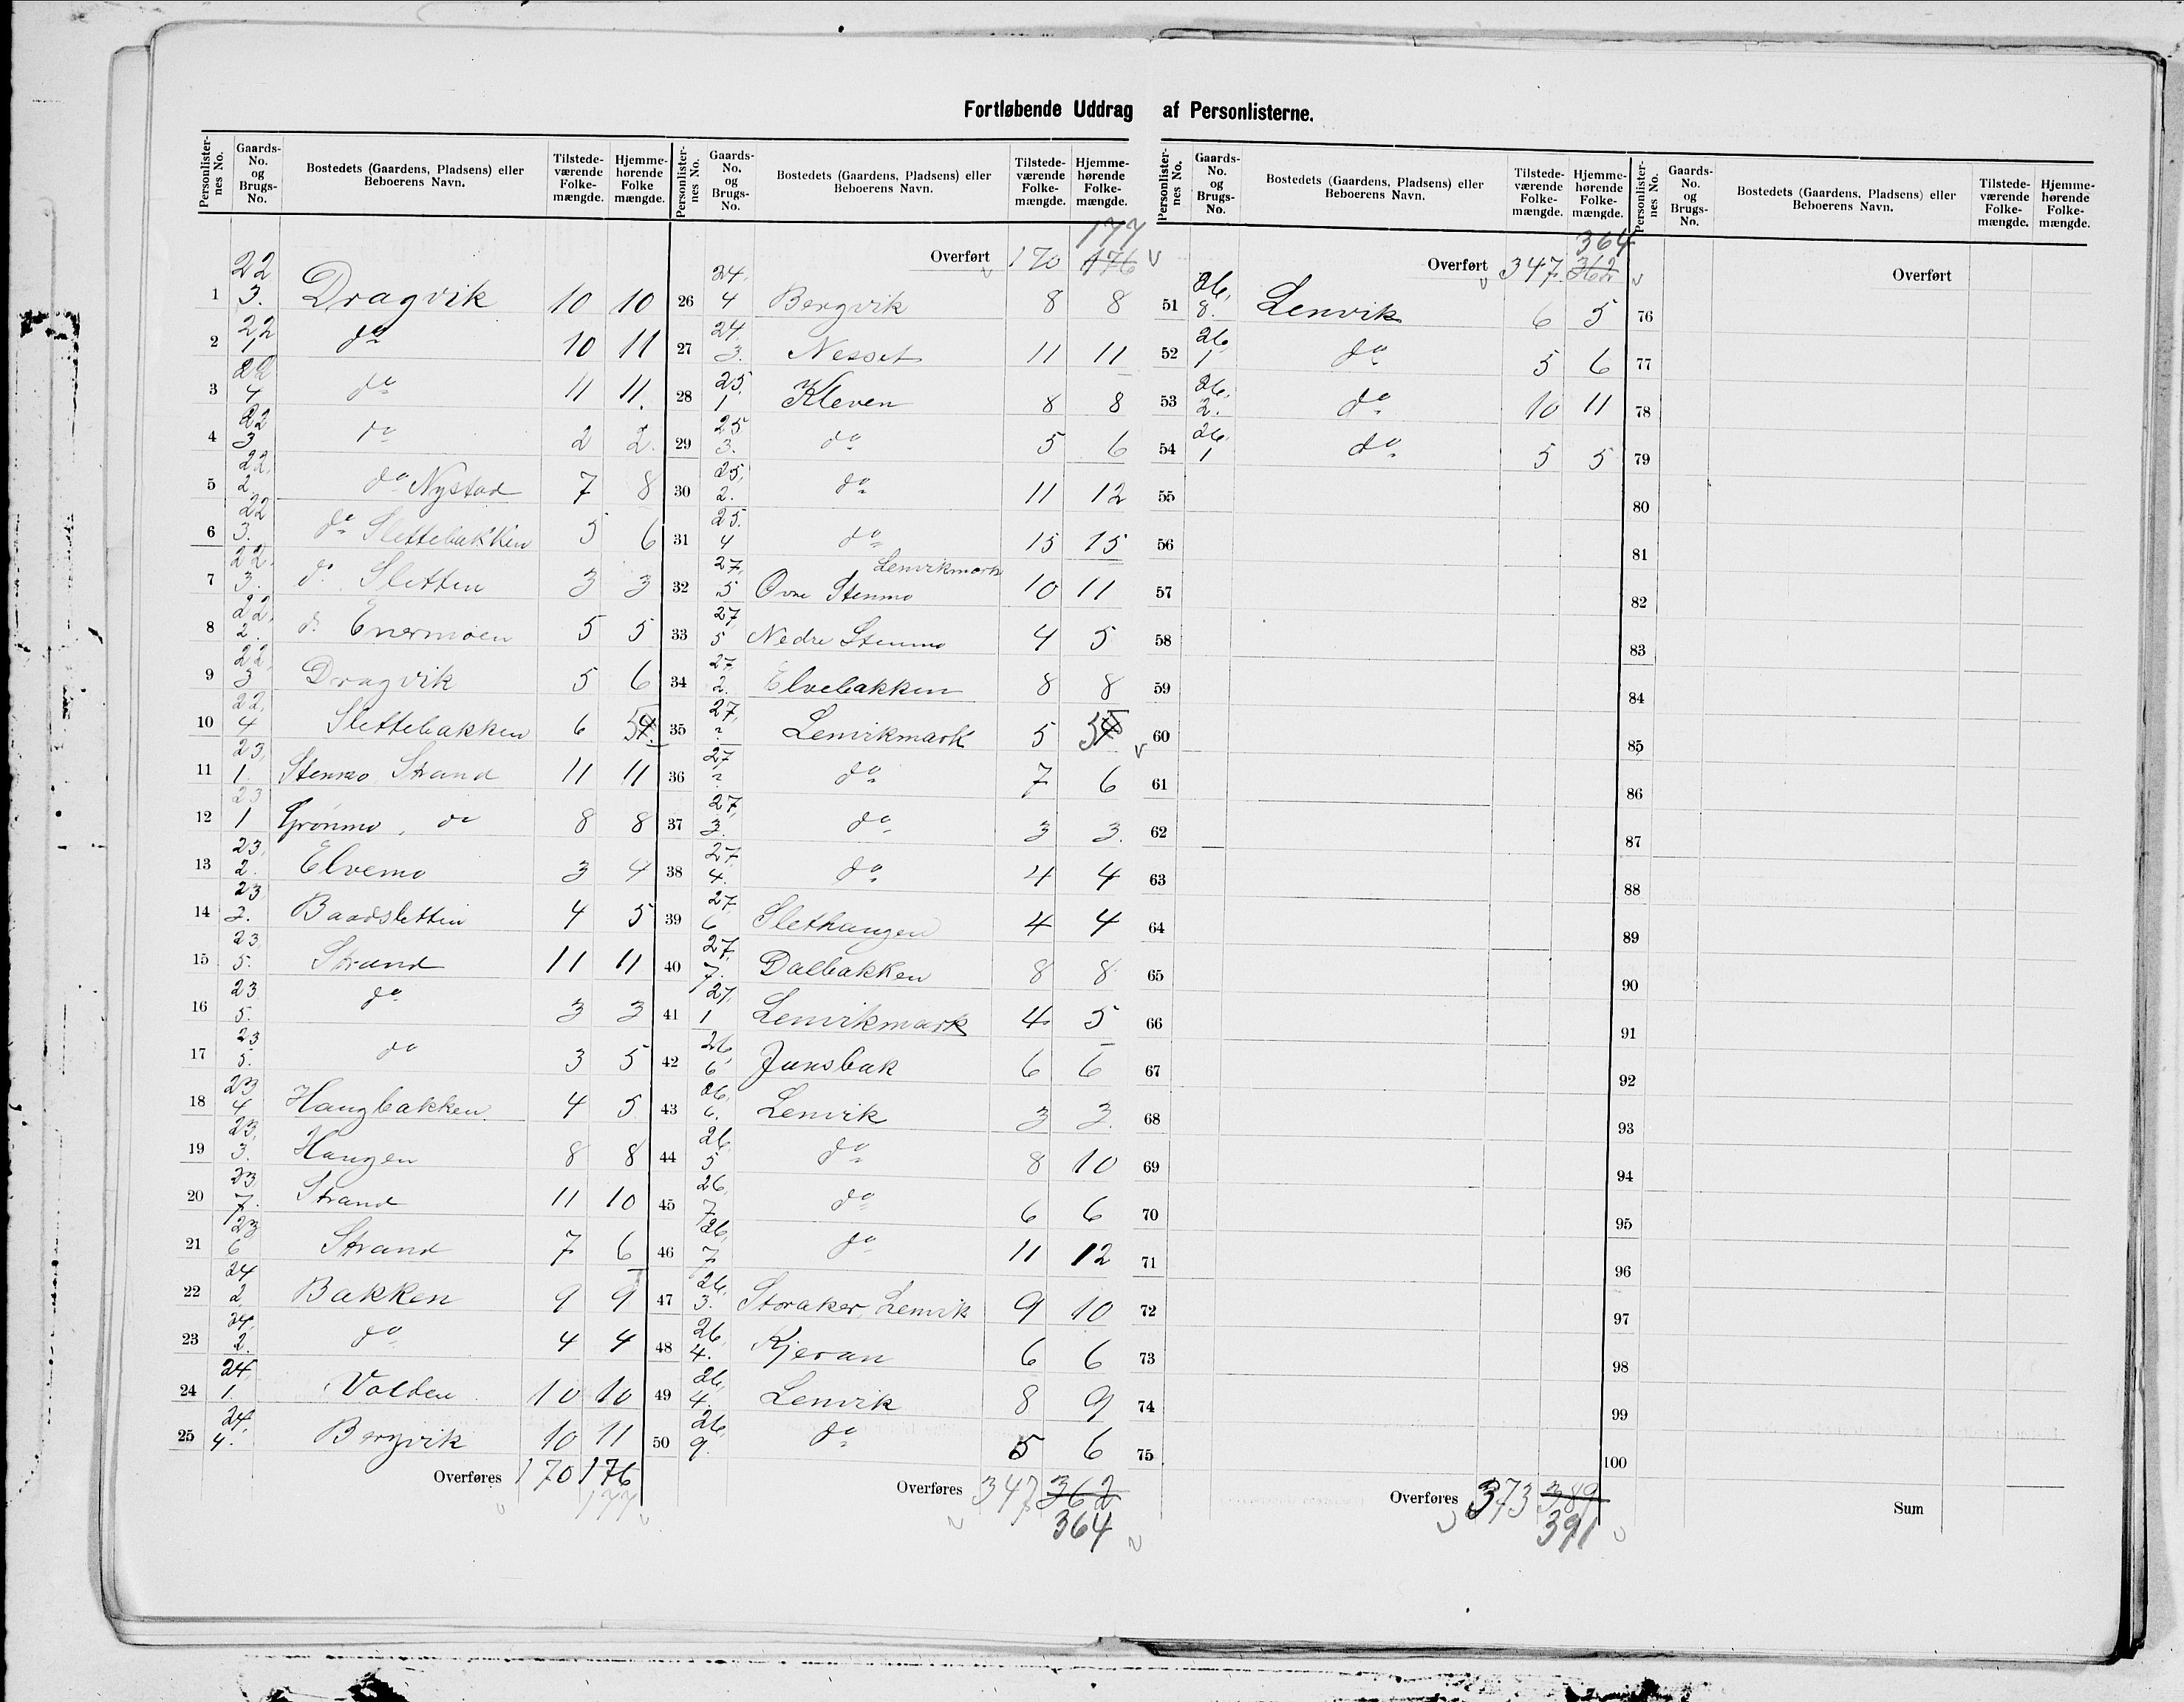 Fortløbende Uddrag af Personlisterne.
Personlisternes No. | Gaards-No. og Brugs-No. | Bostedets (Gaardens, Pladsens) eller Beboerens Navn. | Tilstedeværende Folkemængde. | Hjemmehørende Folke mængde.
1 | 22 3. | Dragvik | 10 | 10
2 | 22 1 | do | 10 | 11
3 | 22 4 | do | 11 | 11.
4 | 22 3 | do | 2 | 2.
5 | 22, 2 | do Nystad | 7 | 8
6 | 22 3. | do Slettebakken | 5 | 6
7 | 22, 3. | do Sletten | 3 | 3
8 | 22, 2. | do Enermoen | 5 | 5
9 | 22, 3 | Dragvik | 5 | 6
10 | 22, 4 | Slettebakken | 6 | 5
11 | 23, 1. | Stenmo Strand | 11 | 11
12 | 23 1 | Grønmo, do | 8 | 8
13 | 23, 2. | Elvemo | 3 | 4
14 | 23 2. | Baadsletten | 4 | 5
15 | 23, 5. | Strand | 11 | 11
16 | 23 5. | do | 3 | 3
17 | 23 5. | do | 3 | 5
18 | 23 4 | Haugbakken | 4 | 5
19 | 23, 3. | Haugen | 8 | 8
20 | 23 7. | Strand | 11 | 10
21 | 23 6 | Strand | 7 | 6
22 | 24 2 | Bakken | 9 | 9
23 | 24, 2. | do | 4 | 4
24 | 24, 1. | Volden | 10 | 10
25 | 24, 4. | Bergvik | 10 | 11
Overføres 170 176
177
Personlisternes No. | Gaards-No. og Brugs-No. | Bostedets (Gaardens, Pladsens) eller Beboerens Navn. | Tilstedeværende Folkemængde. | Hjemmehørende Folkemængde.
177
Overført 170 176
26 | 24, 4 | Bergvik | 8 | 8
27 | 24, 3. | Nesset | 11 | 11
28 | 25. 1 | Kleven | 8 | 8
29 | 25 3. | do | 5 | 6
30 | 25, 2. | do | 11 | 12
31 | 25. 4 | do | 15 | 15
Lenvikmark
32 | 27, 5 | Øvre Stenmo | 10 | 11
33 | 27, 5 | Nedre Stenmo | 4 | 5
34 | 27 2. | Elvebakken | 8 | 8
35 | 27, ? | Lenvikmark | 5 | 5
36 | 27 ? | do | 7 | 6
37 | 27, 3. | do | 3 | 3.
38 | 27, 4. | do | 4 | 4
39 | 27, 6 | Slethaugen | 4 | 4
40 | 27, 7. | Dalbakken | 8 | 8
41 | 27, 1 | Lenvikmark | 4 | 5
42 | 26, 6 | Junsbak | 6 | 6
43 | 26, 6. | Lenvik | 3 | 3.
44 | 26, 5 | do | 8 | 10
45 | 26, 7 | do | 6 | 6
46 | 26, 7 | do | 11 | 12
47 | 26, 3. | Storaker, Lenvik | 9 | 10
48 | 26, 4. | Kjeran | 6 | 6
49 | 26, 4. | Lenvik | 8 | 9
50 | 26, 9. | do | 5 | 6
Overføres 347 362
364
Personlisternes No. | Gaards-No. og Brugs-No. | Bostedets (Gaardens, Pladsens) eller Beboerens Navn. | Tilstedeværende Folkemængde. | Hjemmehørende Folkemængde.
364
Overført 347. 362
51 | 26, 8. | Lenvik | 6 | 5
52 | 26, 1 | do | 5 | 6
53 | 26, 2. | do | 10 | 11
54 | 26, 1 | do | 5 | 5
55
56
57
58
59
60
61
62
63
64
65
66
67
68
69
70
71
72
73
74
75
Overføres 373 389
391
Personlisternes No. | Gaards-No. og Brugs-No. | Bostedets (Gaardens, Pladsens) eller Beboerens Navn. | Tilstedeværende Folkemængde. | Hjemmehørende Folkemængde.
Overført
76
77
78
79
80
81
82
83
84
85
86
87
88
89
90
91
92
93
94
95
96
97
98
99
100
Sum